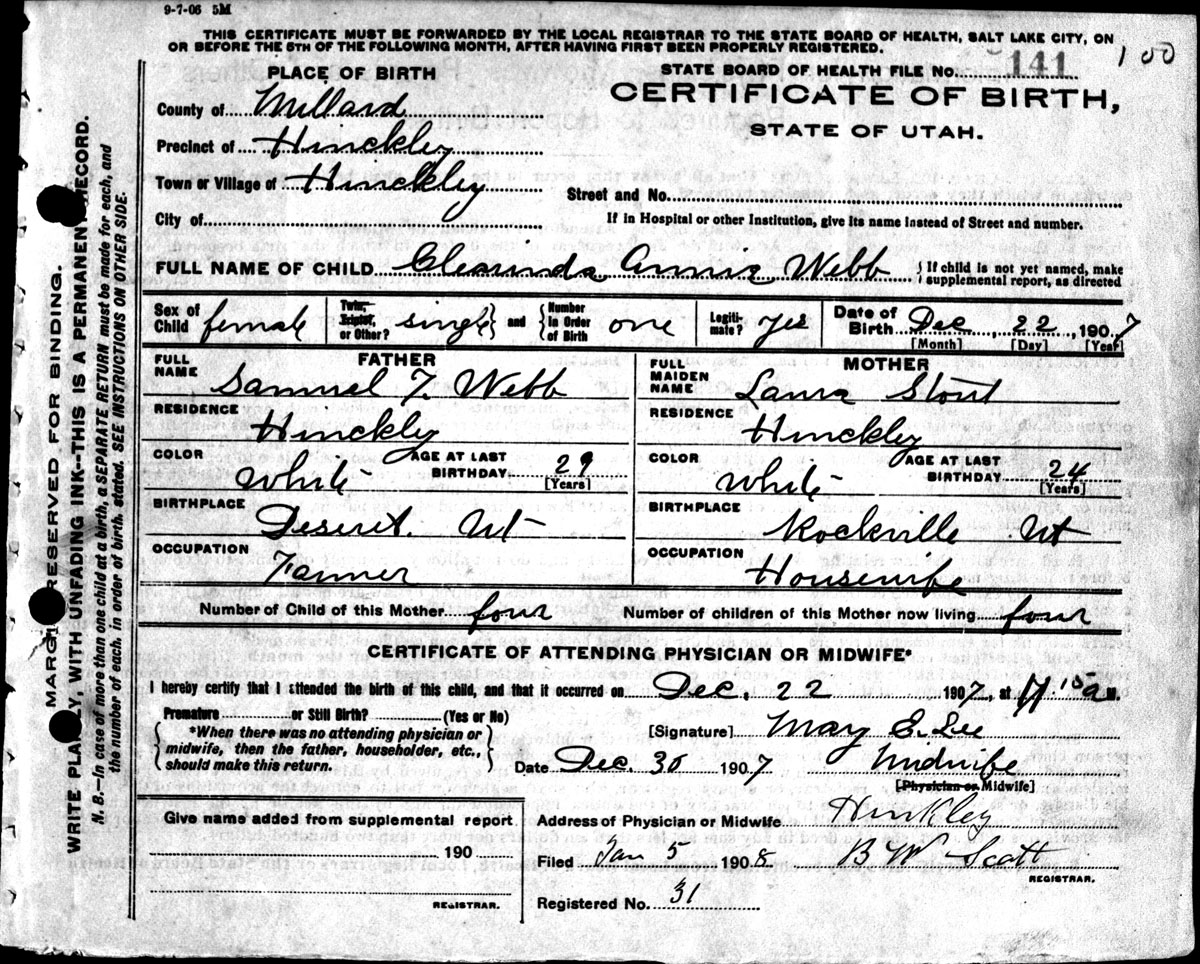 9-7-06 5M
THIS CERTIFICATE MUST BE FORWARDED BY THE LOCAL REGISTRAR TO THE STATE BOARD OF HEALTH, SALT LAKE CITY, ON
OR BEFORE THE 5TH OF THE FOLLOWING MONTH, AFTER HAVING FIRST BEEN PROPERLY REGISTERED.
100
PLACE OF BIRTH
STATE BOARD OF HEALTH FILE NO. 141
County of Millard
CERTIFICATE OF BIRTH,
STATE OF UTAH.
Precinct of Hinckley
Town or Village of Hinckley
Street and No.
City of
If in Hospital or other Institution, give its name instead of Street and number.
FULL NAME OF CHILD Clearinda Annie Webb { If child is not yet named, make supplemental report, as directed
Sex of Child female Twin, Triplet, or Other? single } and { Number in Order of Birth one Legiti-mate? yes Date of Birth Dec, 22, 1907
[Month] [Day] [Year]
FATHER
FULL NAME Samuel T. Webb
RESIDENCE
Hinckley
COLOR White AGE AT LAST BIRTHDAY 29 [Years]
BIRTHPLACE
Deseret. Ut
OCCUPATION
Farmer
MOTHER
FULL MAIDEN NAME Laura Stout
RESIDENCE
Hinckley
COLOR White AGE AT LAST BIRTHDAY 24 [Years]
BIRTHPLACE
Rockville Ut
OCCUPATION
Housewife
Number of Child of this Mother four Number of children of this Mother now living four
CERTIFICATE OF ATTENDING PHYSICIAN OR MIDWIFE*
I hereby certify that I attended the birth of this child, and that it occurred on Dec, 22 1907, at M.
Premature or Still Birth? (Yes or No)
{ *When there was no attending physician or
midwife, then the father, householder, etc.,
should make this return. }
[Signature] Mary E. Lee
Date Dec. 30 1907 Midwife
[Physician or Midwife]
Give name added from supplemental report
190
REGISTRAR.
Address of Physician or Midwife Hinkley
Filed Jan 5 1908 B W Scott
REGISTRAR.
Registered No. 31
MARGIN RESERVED FOR BINDING.
WRITE PLAINLY, WITH UNFADING INK--THIS IS A PERMANENT RECORD.
N. B.--In case of more than one child at a birth, a SEPARATE RETURN must be made for each, and
the number of each, in order of birth, stated. SEE INSTRUCTIONS ON OTHER SIDE.